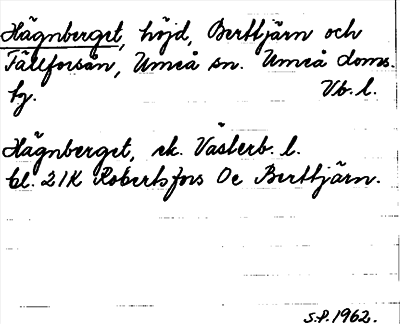 Hägnberget, höjd, Berttjärn och
Tällforsån, Umeå sn. Umeå doms.
hg. Vb. l.
Hägnberget, rk. Västerb. l.
bl. 21K Robertsfors Oc Berttjärn.
S.P. 1962.